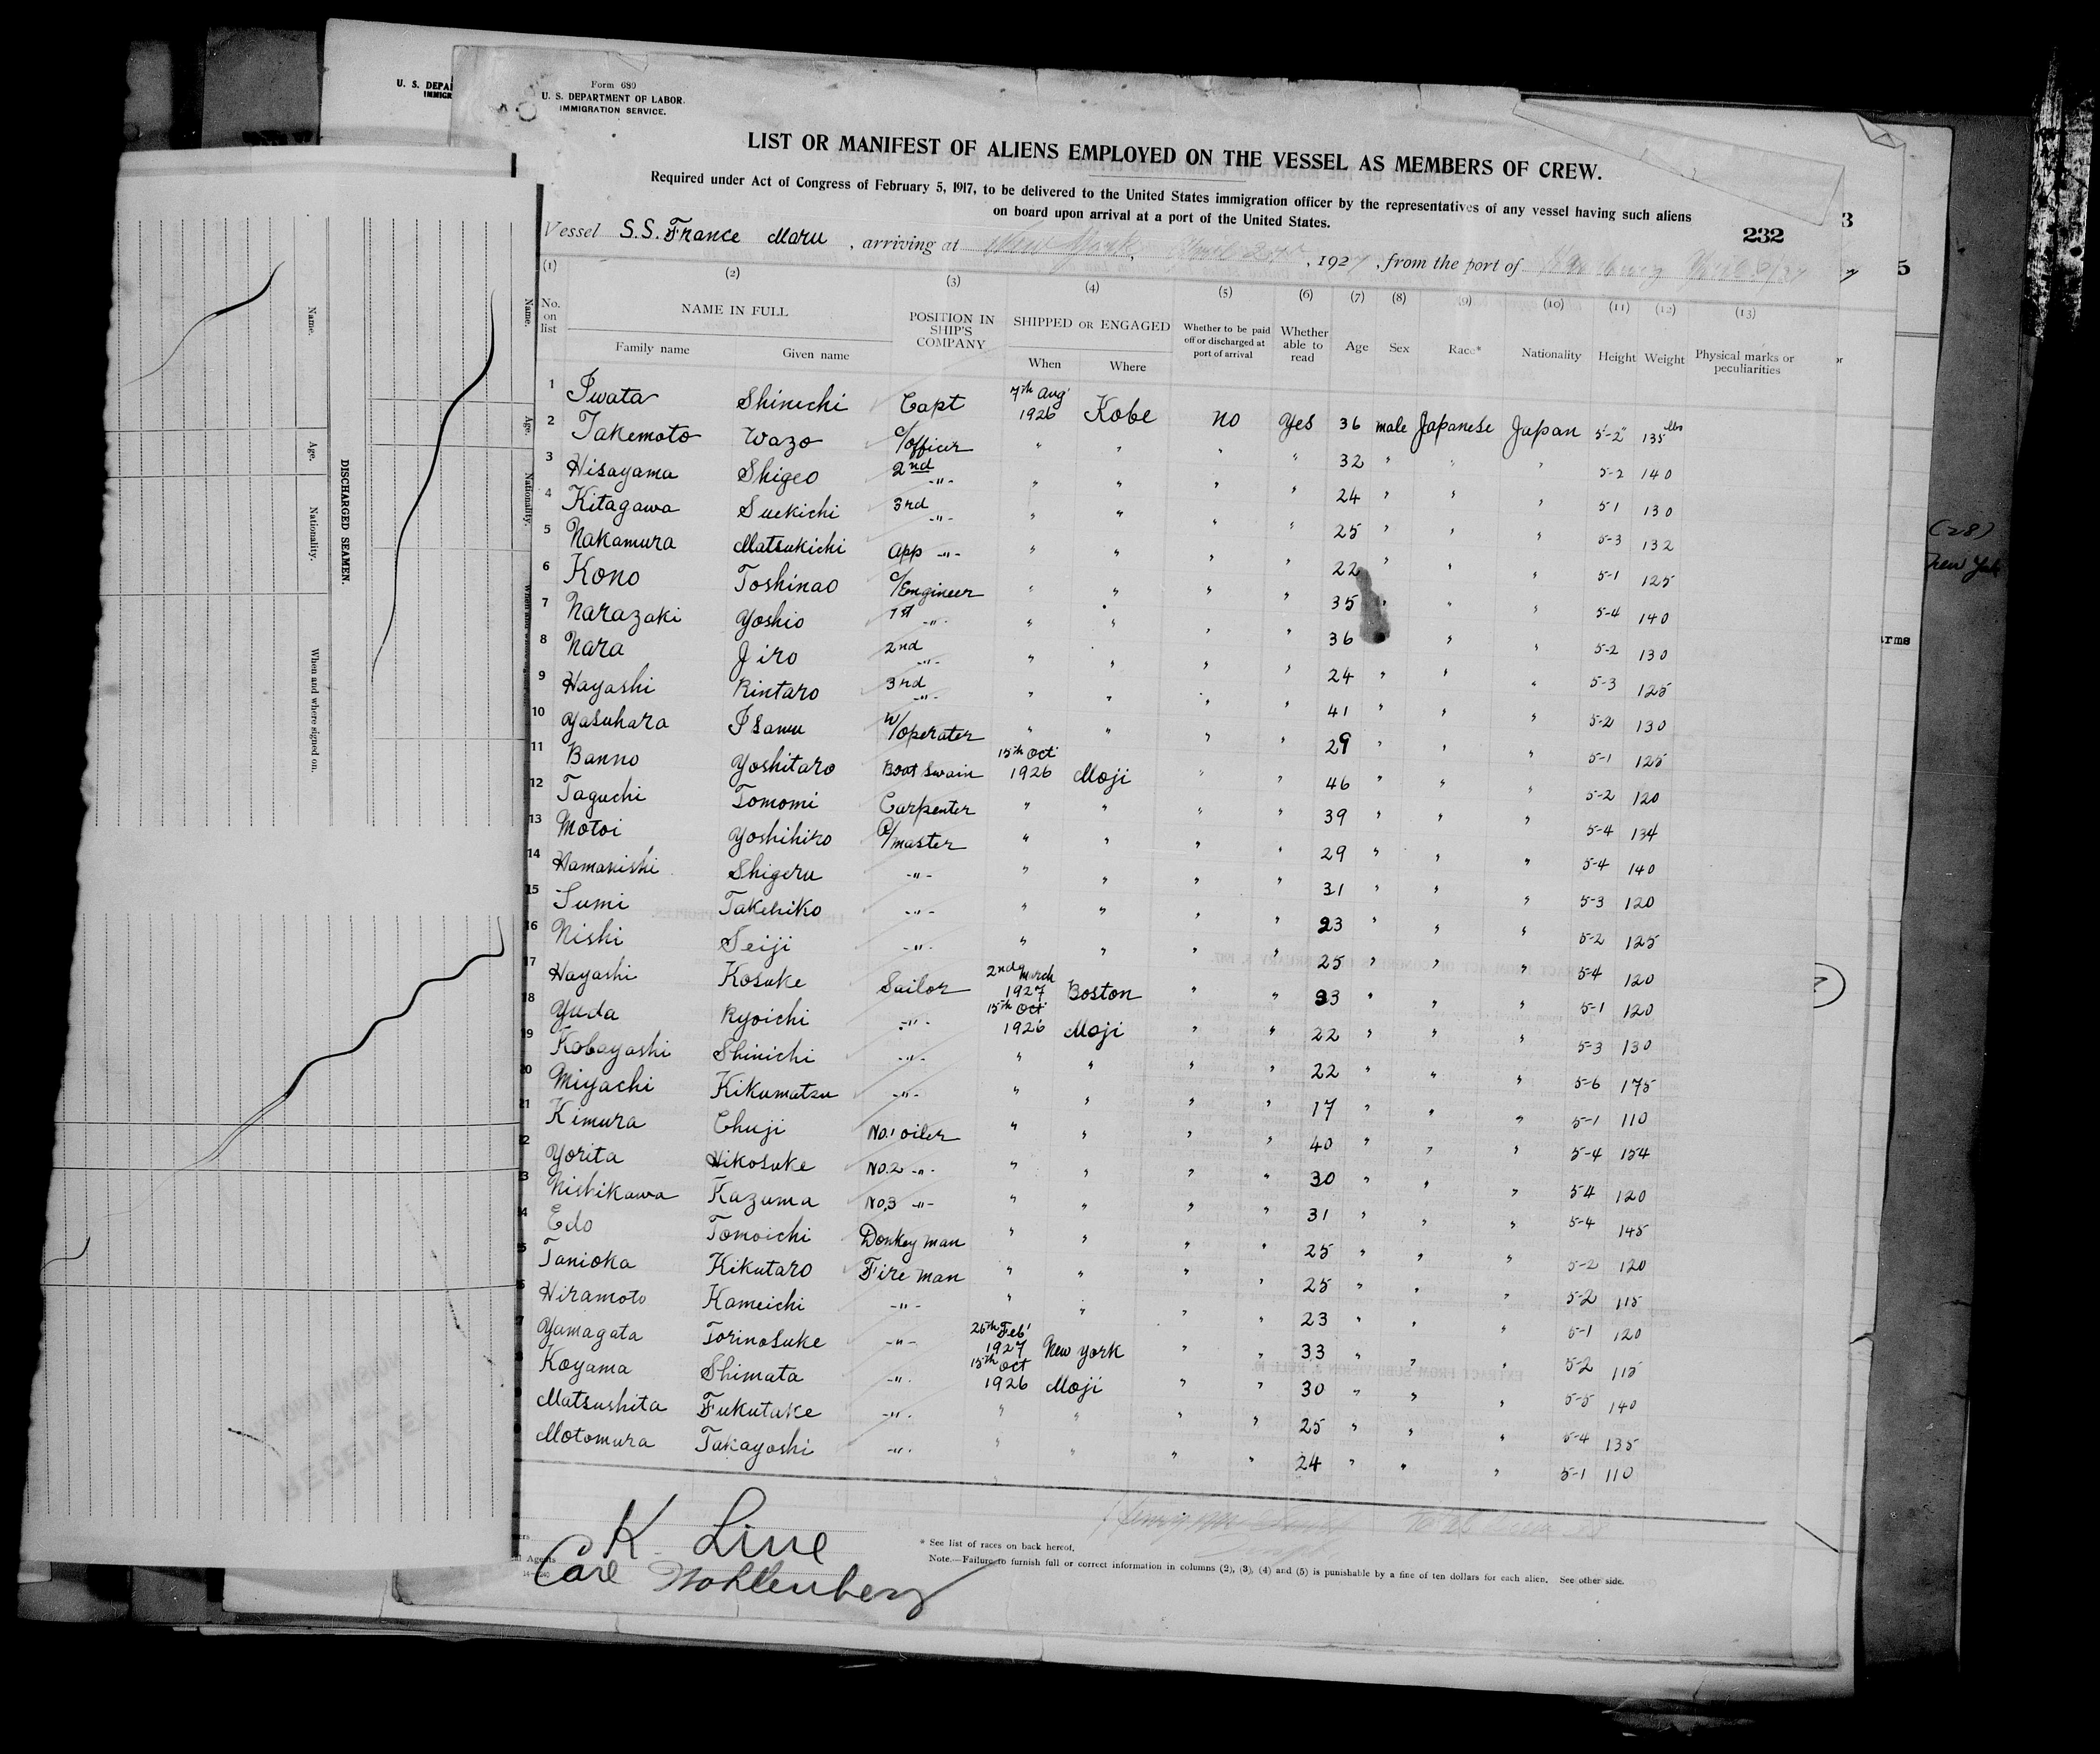 U. S. DEPA
IMMIGR
Form 689
U. S. DEPARTMENT OF LABOR
IMMIGRATION SERVICE.
LIST OR MANIFEST OF ALIENS EMPLOYED ON THE VESSEL AS MEMBERS OF CREW.
Required under Act of Congress of February 5, 1917, to be delivered to the United States immigration officer by the representatives of any vessel having such aliens
on board upon arrival at a port of the United States.
232
3
5
Vessel S.S. France Maru, arriving at New York, April 2, 1927, from the port of
(1) (2) (3) (4) (5) (6) (7) (8) (9) (10) (11) (12) (13)
No. on list NAME IN FULL Family name Given name POSITION IN SHIP'S COMPANY SHIPPED OR ENGAGED When Where Whether to be paid off or discharged at port of arrival Whether able to read Age Sex Race* Nationality Height Weight Physical marks or peculiarities
1 Iwata Shinichi Capt 7th Aug' 1926 Kobe no Yes 36 male Japanese Japan 5'-2" 135 lbs
2 Takemoto Wazo C/officer " " " " 32 " " " 5-2 140
3 Hisayama Shigeo 2nd -"- " " " " 24 " " " 5-1 130
4 Kitagawa Suekichi 3rd -"- " " " " 25 " " " 5-3 132
5 Nakamura Matsukichi App -"- " " " " 22 " " " 5-1 125
6 Kono Toshinao C/Engineer " " " " 35 " " " 5-4 140
7 Narazaki Yoshio 1st -"- " " " " 36 " " 5-2 130
8 Nara Jiro 2nd -"- " " " " 24 " " " 5-3 125
9 Hayashi Rintaro 3rd -"- " " " " 41 " " " 5-2 130
10 Yasuhara Isamu W/operater " " " " 29 " " " 5-1 125
11 Banno Yoshitaro Boat Swain 15th Oct' 1926 Moji " " 46 " " " 5-2 120
12 Taguchi Tomomi Carpenter " " " " 39 " " " 5-4 134
13 Motoi Yoshihiko Q/master " " " " 29 " " " 5-4 140
14 Hamanishi Shigeru -"- " " " " 31 " " " 5-3 120
15 Sumi Takehiko -"- " " " " 23 " " " 5-2 125
16 Nishi Seiji -"- " " " " 25 " " " 5-4 120
17 Hayashi Kosuke Sailor 2nd March 1927 Boston " " 23 " " " 5-1 120
18 Yuda Ryoichi -"- 15th Oct' 1926 Moji " " 22 " " " 5-3 130
19 Kobayashi Shinichi -"- " " " " 22 " " " 5-6 175
20 Miyachi Kikumatsu -"- " " " " 17 " " " 5-1 110
21 Kimura Chuji No.1 oiler " " " " 40 " " " 5-4 154
2 Yorita Hikosuke No.2 -"- " " " " 30 " " " 5-4 120
3 Nishikawa Kazuma No.3 -"- " " " " 31 " " " 5-4 145
4 Edo Tomoichi Donkey man " " " " 25 " " " 5-2 120
5 Tanioka Kikutaro Fire man " " " " 25 " " " 5-2 115
6 Hiramoto Kameichi -"- " " " " 23 " " " 5-1 120
7 Yamagata Torinosuke -"- 25th Feb' 1927 New York " " 33 " " " 5-2 115
8 Koyama Shimata -"- 15th Oct 1926 Moji " " 30 " " " 5-5 140
Matsushita Fukutake -"- " " " " 25 " " " 5-4 135
Motomura Takayoshi -"- " " " " 24 " " " 5-1 110
K Line
Carl Wohlenberg
* See list of races on back hereof.
Note.—Failure to furnish full or correct information in columns (2), (3), (4) and (5) is punishable by a fine of ten dollars for each alien. See other side.
DISCHARGED SEAMEN.
Name.
Age.
Nationality.
When and where signed on.
Name.
Age.
Nationality.
RECEIVE
(28)
New York
arms